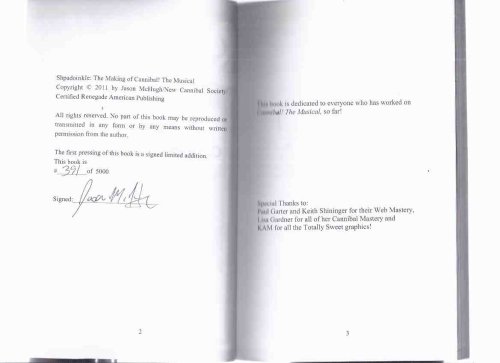 Shpadoinkle: The Making of Cannibal! The Musical
Copyright © 2011 by Jason McHugh/New Cannibal Society/
Certified Renegade American Publishing
All rights reserved. No part of this book may be reproduced or
transmitted in any form or by any means without written
permission from the author.
The first pressing of this book is a signed limited addition.
This book is
# 391 of 5000
Signed: Jason M. H
2
This book is dedicated to everyone who has worked on
Cannibal! The Musical, so far!
Special Thanks to:
Paul Garter and Keith Shininger for their Web Mastery,
Lisa Gardner for all of her Cannibal Mastery and
KAM for all the Totally Sweet graphics!
3